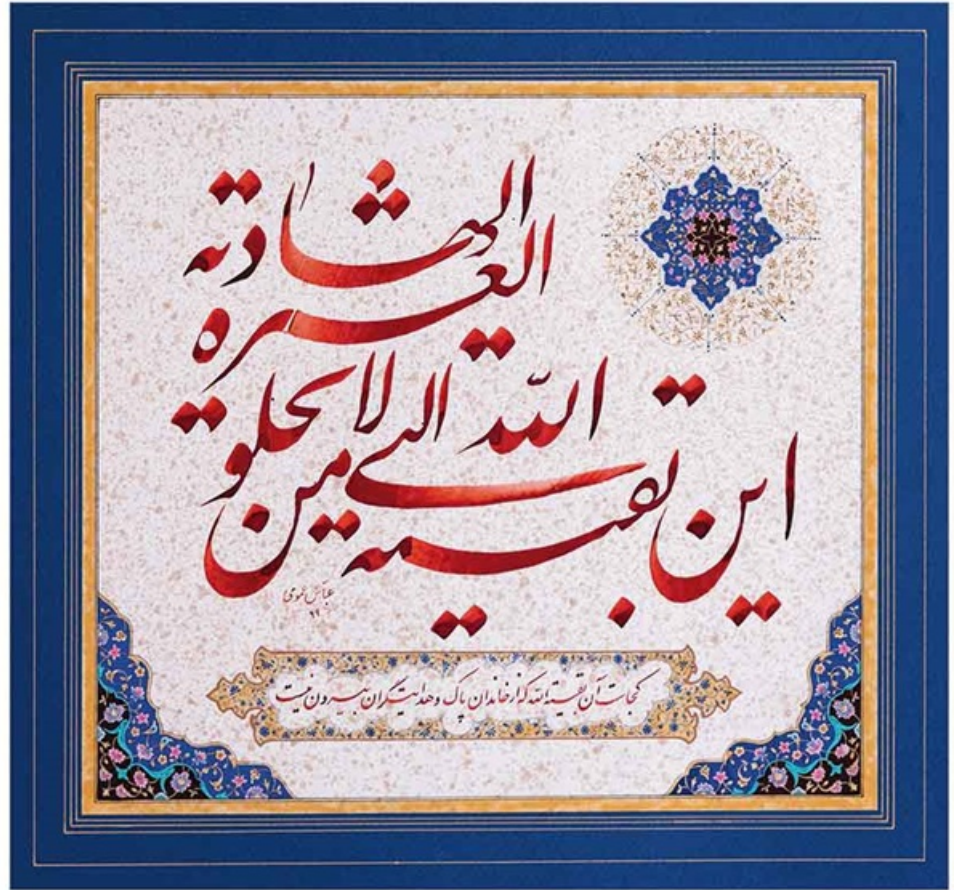 این بقیة الله التی لا تخلو من
العترة الهادیة
عباس
کجاست آن بقیة الله که از خاندان پاک و هدایت‌گران بیرون نیست